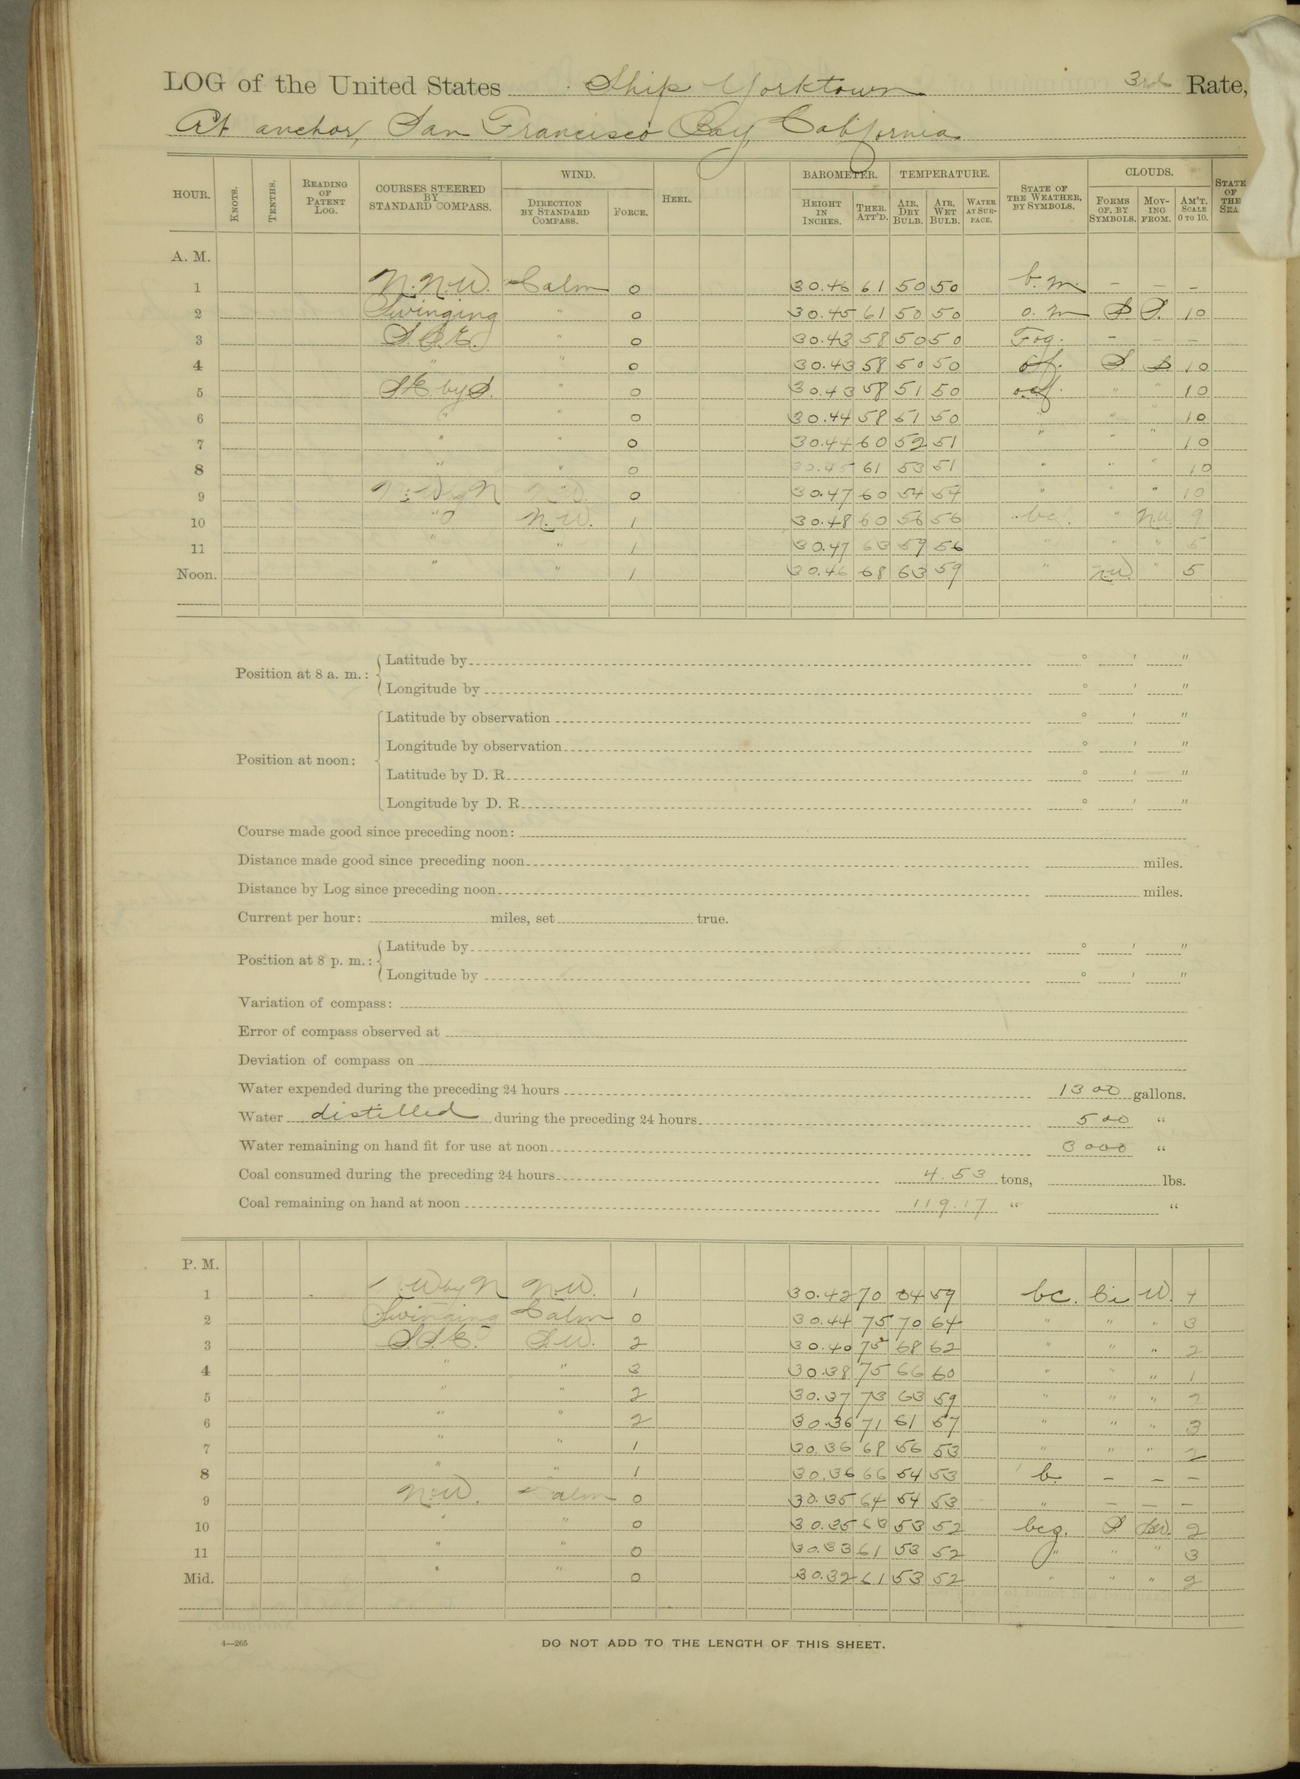 LOG of the United States Ship Yorktown 3rd Rate,
At anchor, San Francisco Bay, California
HOUR. KNOTS. TENTHS. READING OF PATENT LOG. COURSES STEERED BY STANDARD COMPASS. WIND. DIRECTION BY STANDARD COMPASS. FORCE. HEEL. BAROMETER. HEIGHT IN INCHES. THER. ATT'D. TEMPERATURE. AIR, DRY BULB. AIR, WET BULB. WATER AT SURFACE. STATE OF THE WEATHER, BY SYMBOLS. CLOUDS. FORMS OF, BY SYMBOLS. MOVING FROM. AM'T. SCALE 0 TO 10. STATE OF THE SEA
A. M.
1 N.N.W. Calm 0 30.46 61 50 50 b.m – – –
2 Swinging " 0 30.45 61 50 50 o.m S S. 10
3 S.S.E. " 0 30.43 58 50 50 Fog. – – –
4 " " 0 30.43 58 50 50 S S 10
5 SE by S. " 0 30.43 58 51 50 " " 10
6 " " 0 30.44 58 51 50 " " " 10
7 " " 0 30.44 60 52 51 " " " 10
8 " " 0 30.45 61 53 51 " " " 10
9 N.W by N 0 30.47 60 54 54 " " " 10
10 " N.W. 1 30.48 60 56 56 bc. " NW 9
11 " " 1 30.47 63 59 56 " " " 5
Noon. " " 1 30.46 68 63 59 " " 5
Position at 8 a. m.: Latitude by ° ' "
Longitude by ° ' "
Position at noon: Latitude by observation ° ' "
Longitude by observation ° ' "
Latitude by D. R. ° ' "
Longitude by D. R. ° ' "
Course made good since preceding noon:
Distance made good since preceding noon miles.
Distance by Log since preceding noon miles.
Current per hour: miles, set true.
Position at 8 p. m.: Latitude by ° ' "
Longitude by ° ' "
Variation of compass:
Error of compass observed at
Deviation of compass on
Water expended during the preceding 24 hours 1300 gallons.
Water distilled during the preceding 24 hours 500 "
Water remaining on hand fit for use at noon 3000 "
Coal consumed during the preceding 24 hours 4.53 tons, lbs.
Coal remaining on hand at noon 119.17 " "
P. M.
1 NW by N N.W. 1 30.42 70 64 59 bc. Ci W. 4
2 Swinging Calm 0 30.44 75 70 64 " " " 3
3 S.S.E. S.W. 2 30.40 75 68 62 " " " 2
4 " " 3 30.38 75 66 60 " " " 1
5 " " 2 30.37 73 63 59 " " " 2
6 " " 2 30.36 71 61 57 " " " 3
7 " " 1 30.36 68 56 53 " " " 2
8 " " 1 30.36 66 54 53 b. – – –
9 N.W. Calm 0 30.35 64 54 53 " – – –
10 " " 0 30.35 63 53 52 bcg. S SW. 2
11 " " 0 30.33 61 53 52 " " " 3
Mid. " " 0 30.32 61 53 52 " " " 2
4—265
DO NOT ADD TO THE LENGTH OF THIS SHEET.